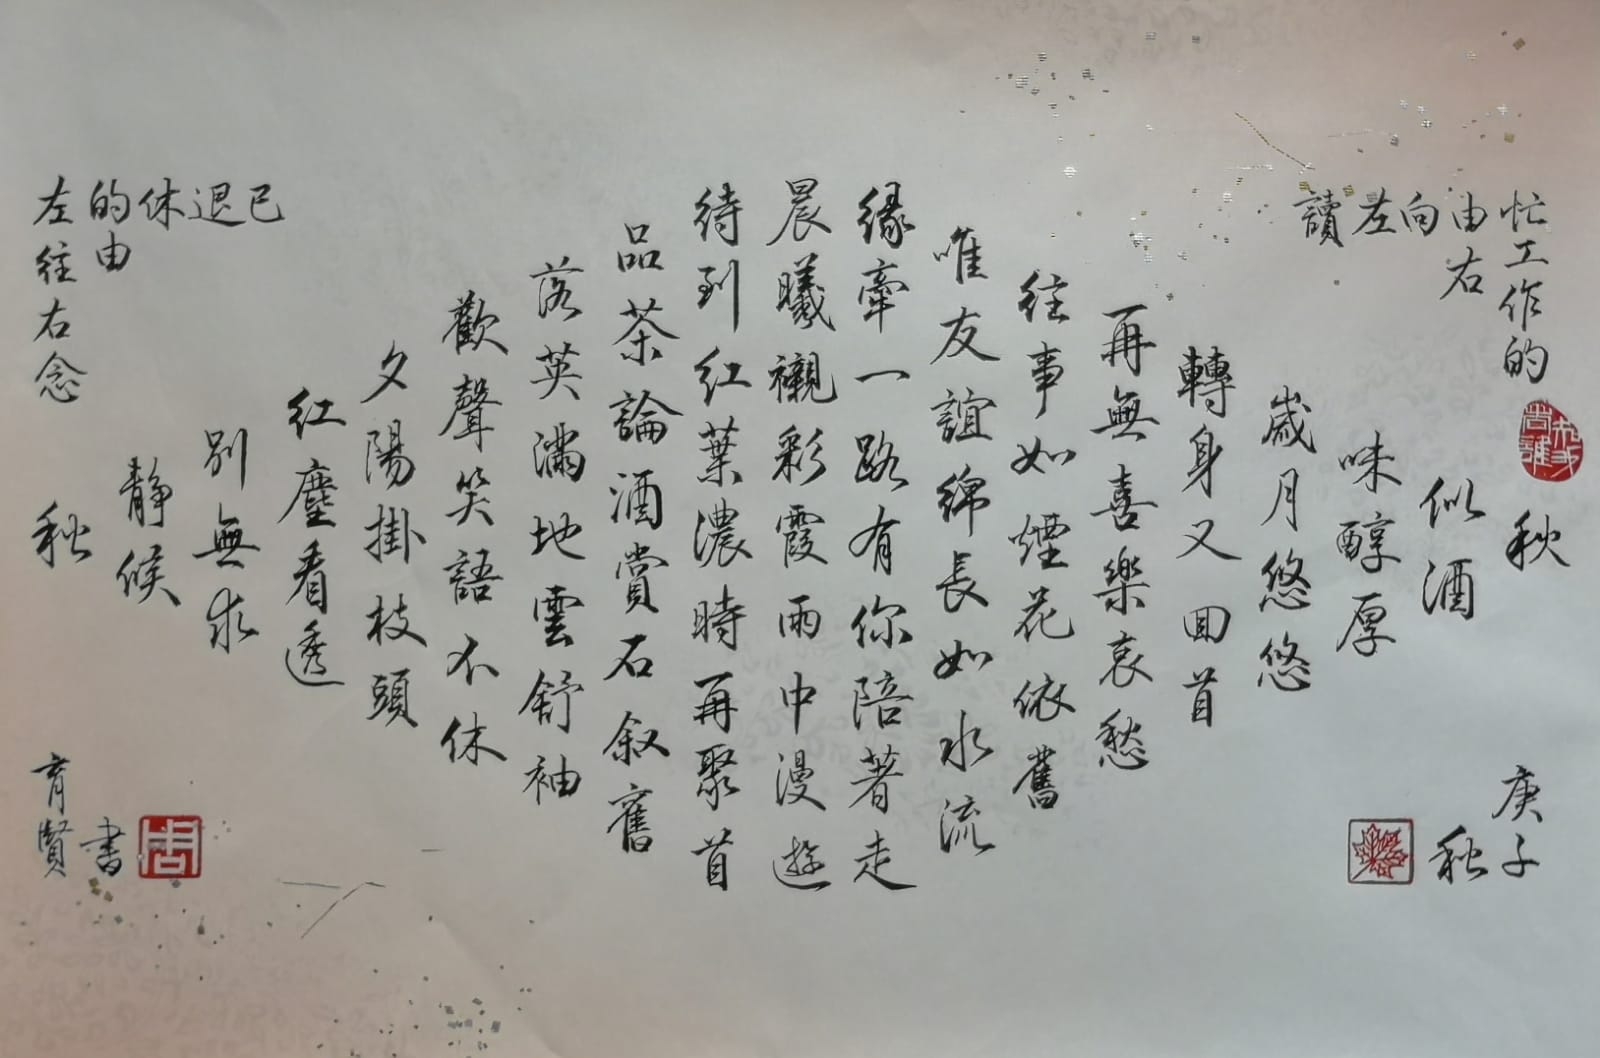 忙工作的
由右
向
左
讀
秋
似酒
味醇厚
歲月悠悠
轉身又回首
再無喜樂哀愁
往事如煙花依舊
唯友誼綿長如水流
緣牽一路有你陪著走
晨曦襯彩霞雨中漫遊
待到红葉濃時再聚首
品茶論酒賞石敘舊
落英滿地雲舒袖
歡聲笑語不休
夕陽掛枝頭
红塵看透
別無求
靜候
秋
已
退
休
的由
左往右念
庚子
秋
育賢
書
周